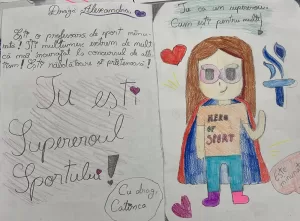 Dragă Alexandra,
Ești o profesoară de sport minu-
nată! Îți mulțumesc extrem de mult
că mă încurajezi la concursul de atle-
tism! Ești răbdătoare și prietenoasă!
Tu ești
Supereroul
Sportului!
Cu drag,
Catinca
Tu ca un supererou
Cum ești pentru mulți
HERO
OF
SPORT